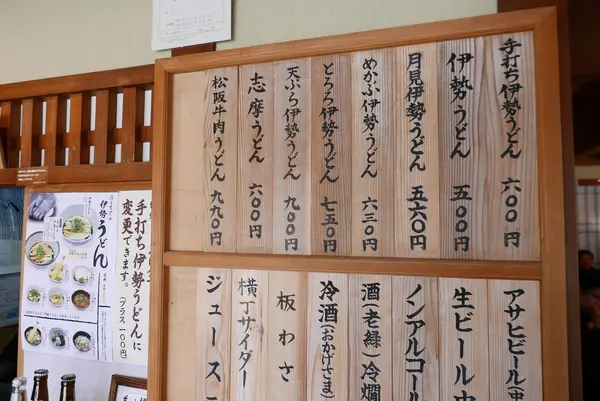 手打ち伊勢うどん 六〇〇円
伊勢うどん 五〇〇円
月見伊勢うどん 五六〇円
めかぶ伊勢うどん 六三〇円
とろろ伊勢うどん 七五〇円
天ぷら伊勢うどん 九〇〇円
志摩うどん 六〇〇円
松阪牛肉うどん 九九〇円
アサヒビール中
生ビール中
ノンアルコール
酒（老緑）冷燗
冷酒（おかげさま）
板わさ
横丁サイダー
ジュース
手打ち伊勢うどんに
変更できます。（プラス一〇〇円）
伊勢うどん